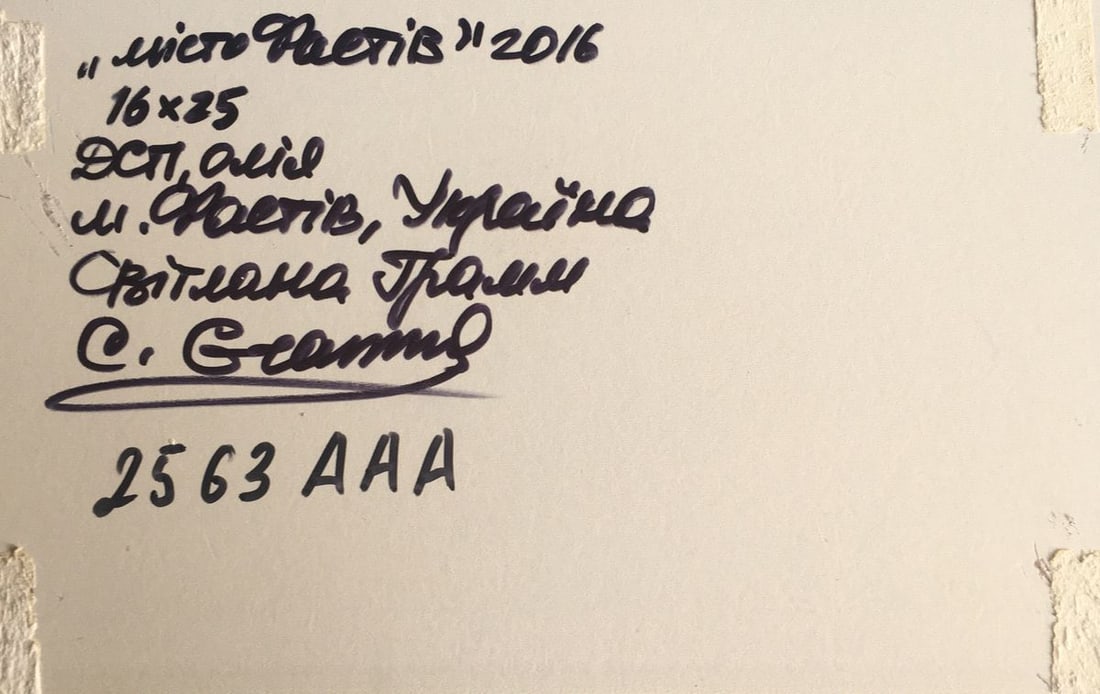 „місто Фастів" 2016
16×25
ДСП, олія
м. Фастів, Україна
Світлана Грамм
С.
2563 ААА